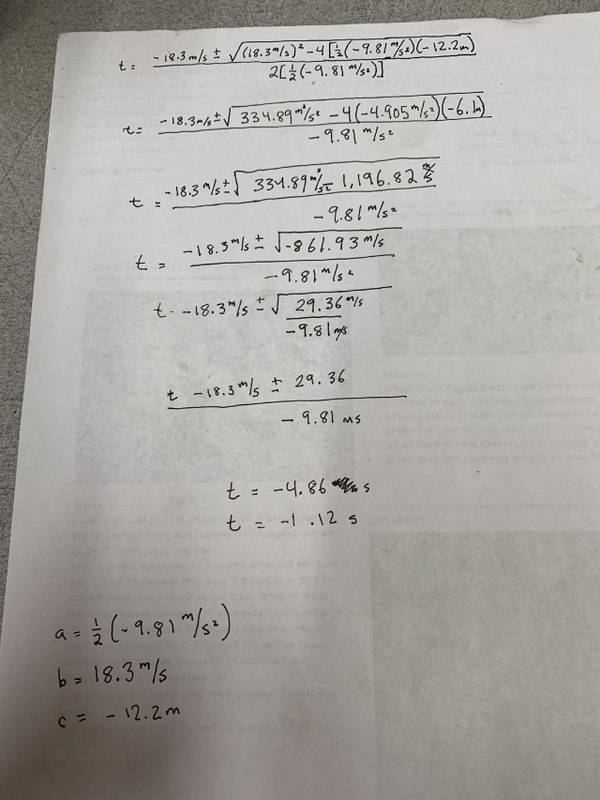 t = -18.3 m/s ± √(18.3 m/s)² - 4[½(-9.81 m/s²)(-12.2m)
2[½(-9.81 m/s²)]
t = -18.3 m/s ± √334.89 m²/s² - 4(-4.905 m/s²)(-6.1
-9.81 m/s²
t = -18.3 m/s ± √334.89 m²/s² - 1,196.82 m/s
-9.81 m/s²
t = -18.3 m/s ± √-861.93 m/s
-9.81 m/s²
t - -18.3 m/s ± √29.36 m/s
-9.81 m/s
t -18.3 m/s ± 29.36
-9.81 ms
t = -4.86 s
t = -1.12 s
a = ½(-9.81 m/s²)
b = 18.3 m/s
c = -12.2m